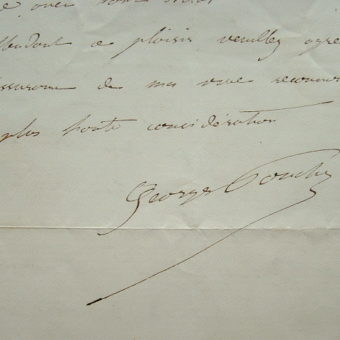 avec
ce plaisir veuillez agré
assurance de ma vive reconnais
plus haute considération
Georges Pouchet